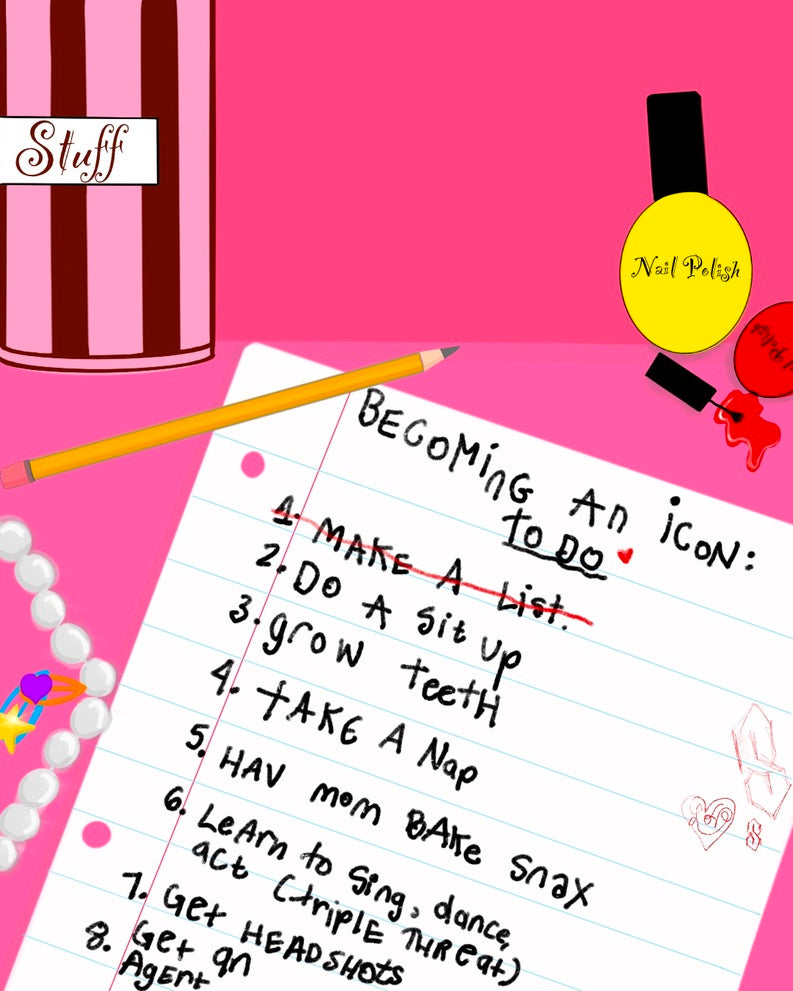 Stuff
Nail Polish
BECOMiNG An iCON:
To DO
1. MAKE A List.
2. DO A Sit up
3. grow teetH
4. tAKE A Nap
5. HAV mom BAKe snax
6. LeArn to Sing, dance,
act (triplE THReat)
7. Get HEADSHOts
8. Get an
Agent